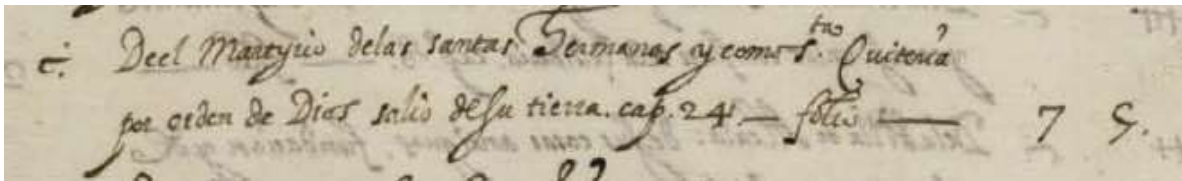 c. Deel Martyrio delas santas Hermanas y como s.ta Quiteria
por orden de Dios salio de su tierra. cap. 24. — folio — 7 5.